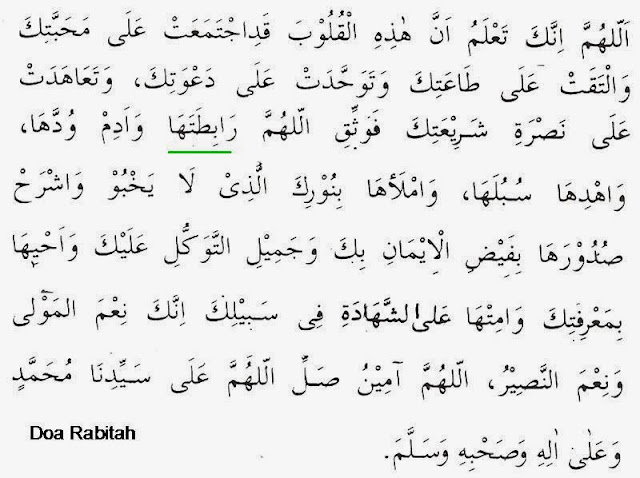 اَللّهُمَّ اِنَّكَ تَعْلَمُ اَنَّ هٰذِهِ الْقُلُوْبَ قَدِاجْتَمَعَتْ عَلَى مَحَبَّتِكَ
وَالْتَقَتْ عَلَى طَاعَتِكَ وَتَوَحَّدَتْ عَلَى دَعْوَتِكَ، وَتَعَاهَدَتْ
عَلَى نَصْرَةِ شَرِيْعَتِكَ فَوَثِّقِ اللّهُمَّ رَابِطَتَهَا وَاَدِمْ وُدَّهَا،
وَاهْدِهَا سُبُلَهَا، وَامْلَأْهَا بِنُوْرِكَ الَّذِيْ لَا يَخْبُوْ وَاشْرَحْ
صُدُوْرَهَا بِفَيْضِ الْاِيْمَانِ بِكَ وَجَمِيْلِ التَّوَكُّلِ عَلَيْكَ وَاَحْيِهَا
بِمَعْرِفَتِكَ وَامِتْهَا عَلَى الشَّهَادَةِ فِى سَبِيْلِكَ اِنَّكَ نِعْمَ المَوْلٰى
وَنِعْمَ النَّصِيْرُ، اللّهُمَّ آمِيْنُ صَلِّ اللّهُمَّ عَلَى سَيِّدِنَا مُحَمَّدٍ
وَعَلٰى اٰلِهِ وَصَحْبِهِ وَسَلَّمَ.
Doa Rabitah